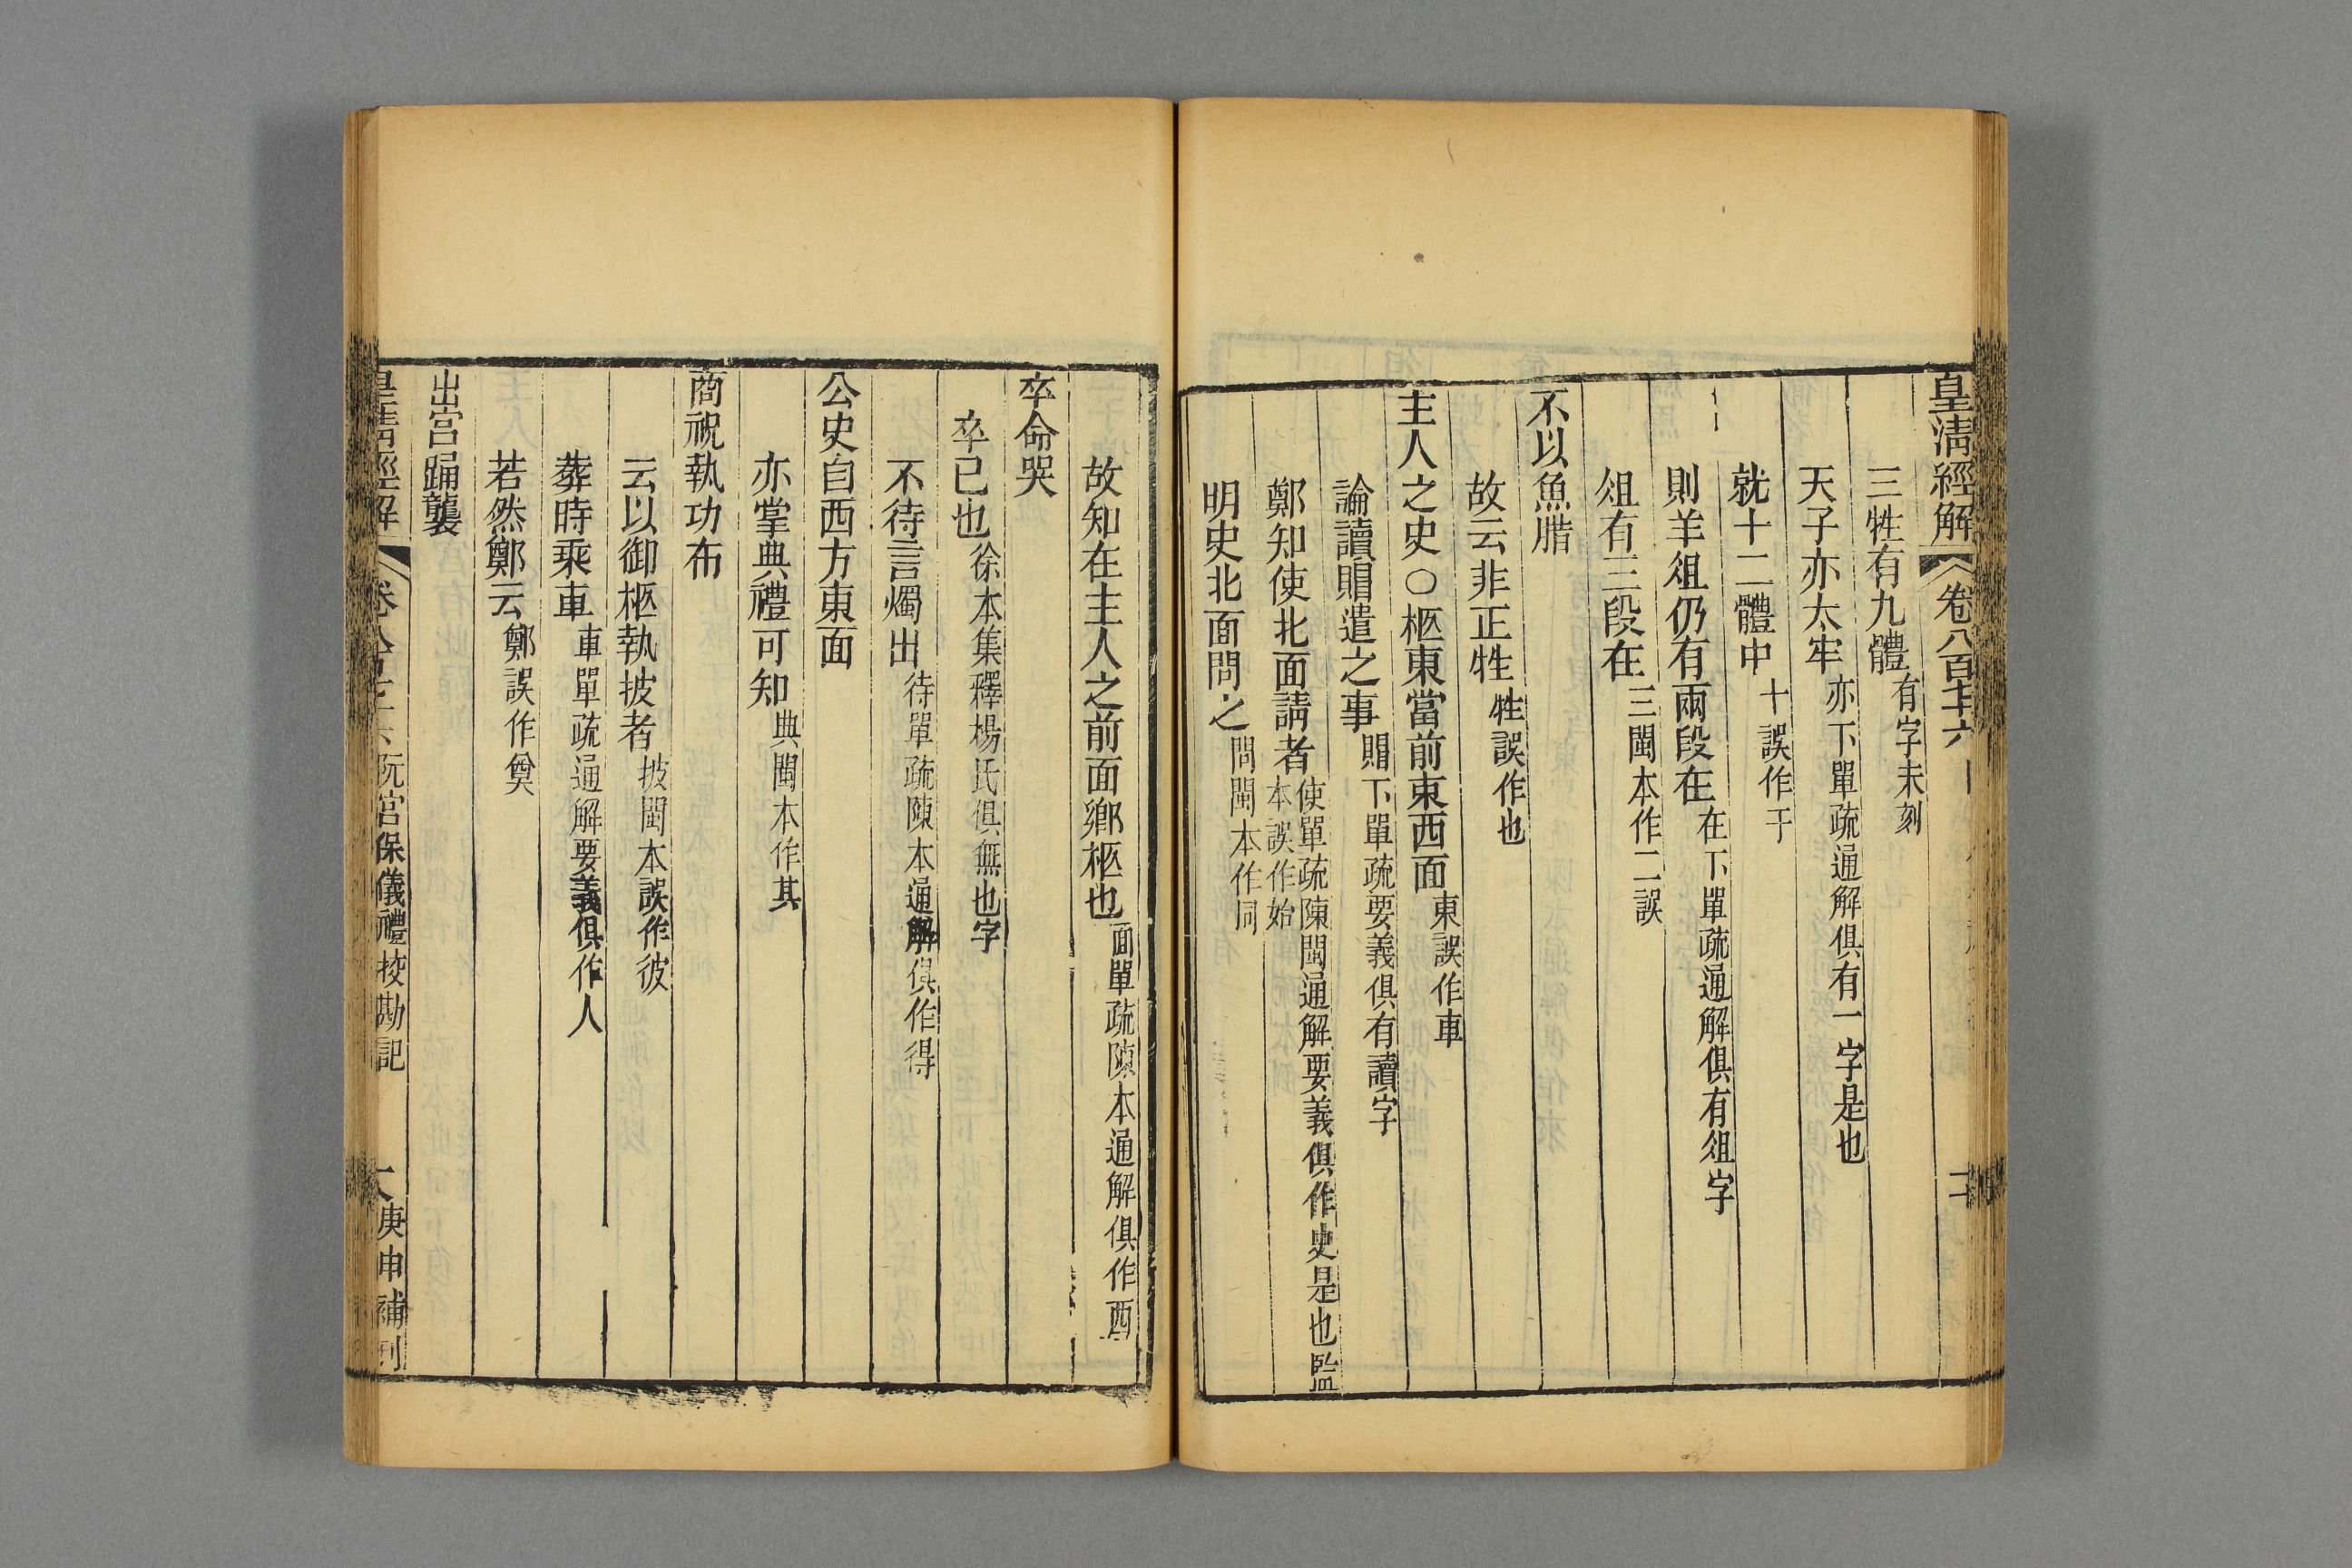 皇清經解 卷八百七十六
三牲有九體有字未刻
天子亦太牢亦下單疏通解俱有一字是也
就十二體中十誤作于
則羊俎仍有兩段在在下單疏通解俱有俎字
俎有三段在三閩本作二誤
不以魚腊
故云非正牲牲誤作也
主人之史○柩東當前東西面東誤作車
論讀賵遣之事賵下單疏要義俱有讀字
鄭知使北面請者使單疏陳閩通解要義俱作史是也監本誤作始
明史北面問之問閩本作同
故知在主人之前面鄉柩也面單疏陳本通解俱作西
卒命哭
卒已也徐本集釋楊氏俱無也字
不待言燭出待單疏陳本通解俱作得
公史自西方東面
亦掌典禮可知典閩本作其
商祝執功布
云以御柩執披者披閩本誤作彼
葬時乘車車單疏通解要義俱作人
若然鄭云鄭誤作奠
出宮踊襲
皇清經解 卷八百七十六 阮宮保儀禮挍勘記 庚申補刊